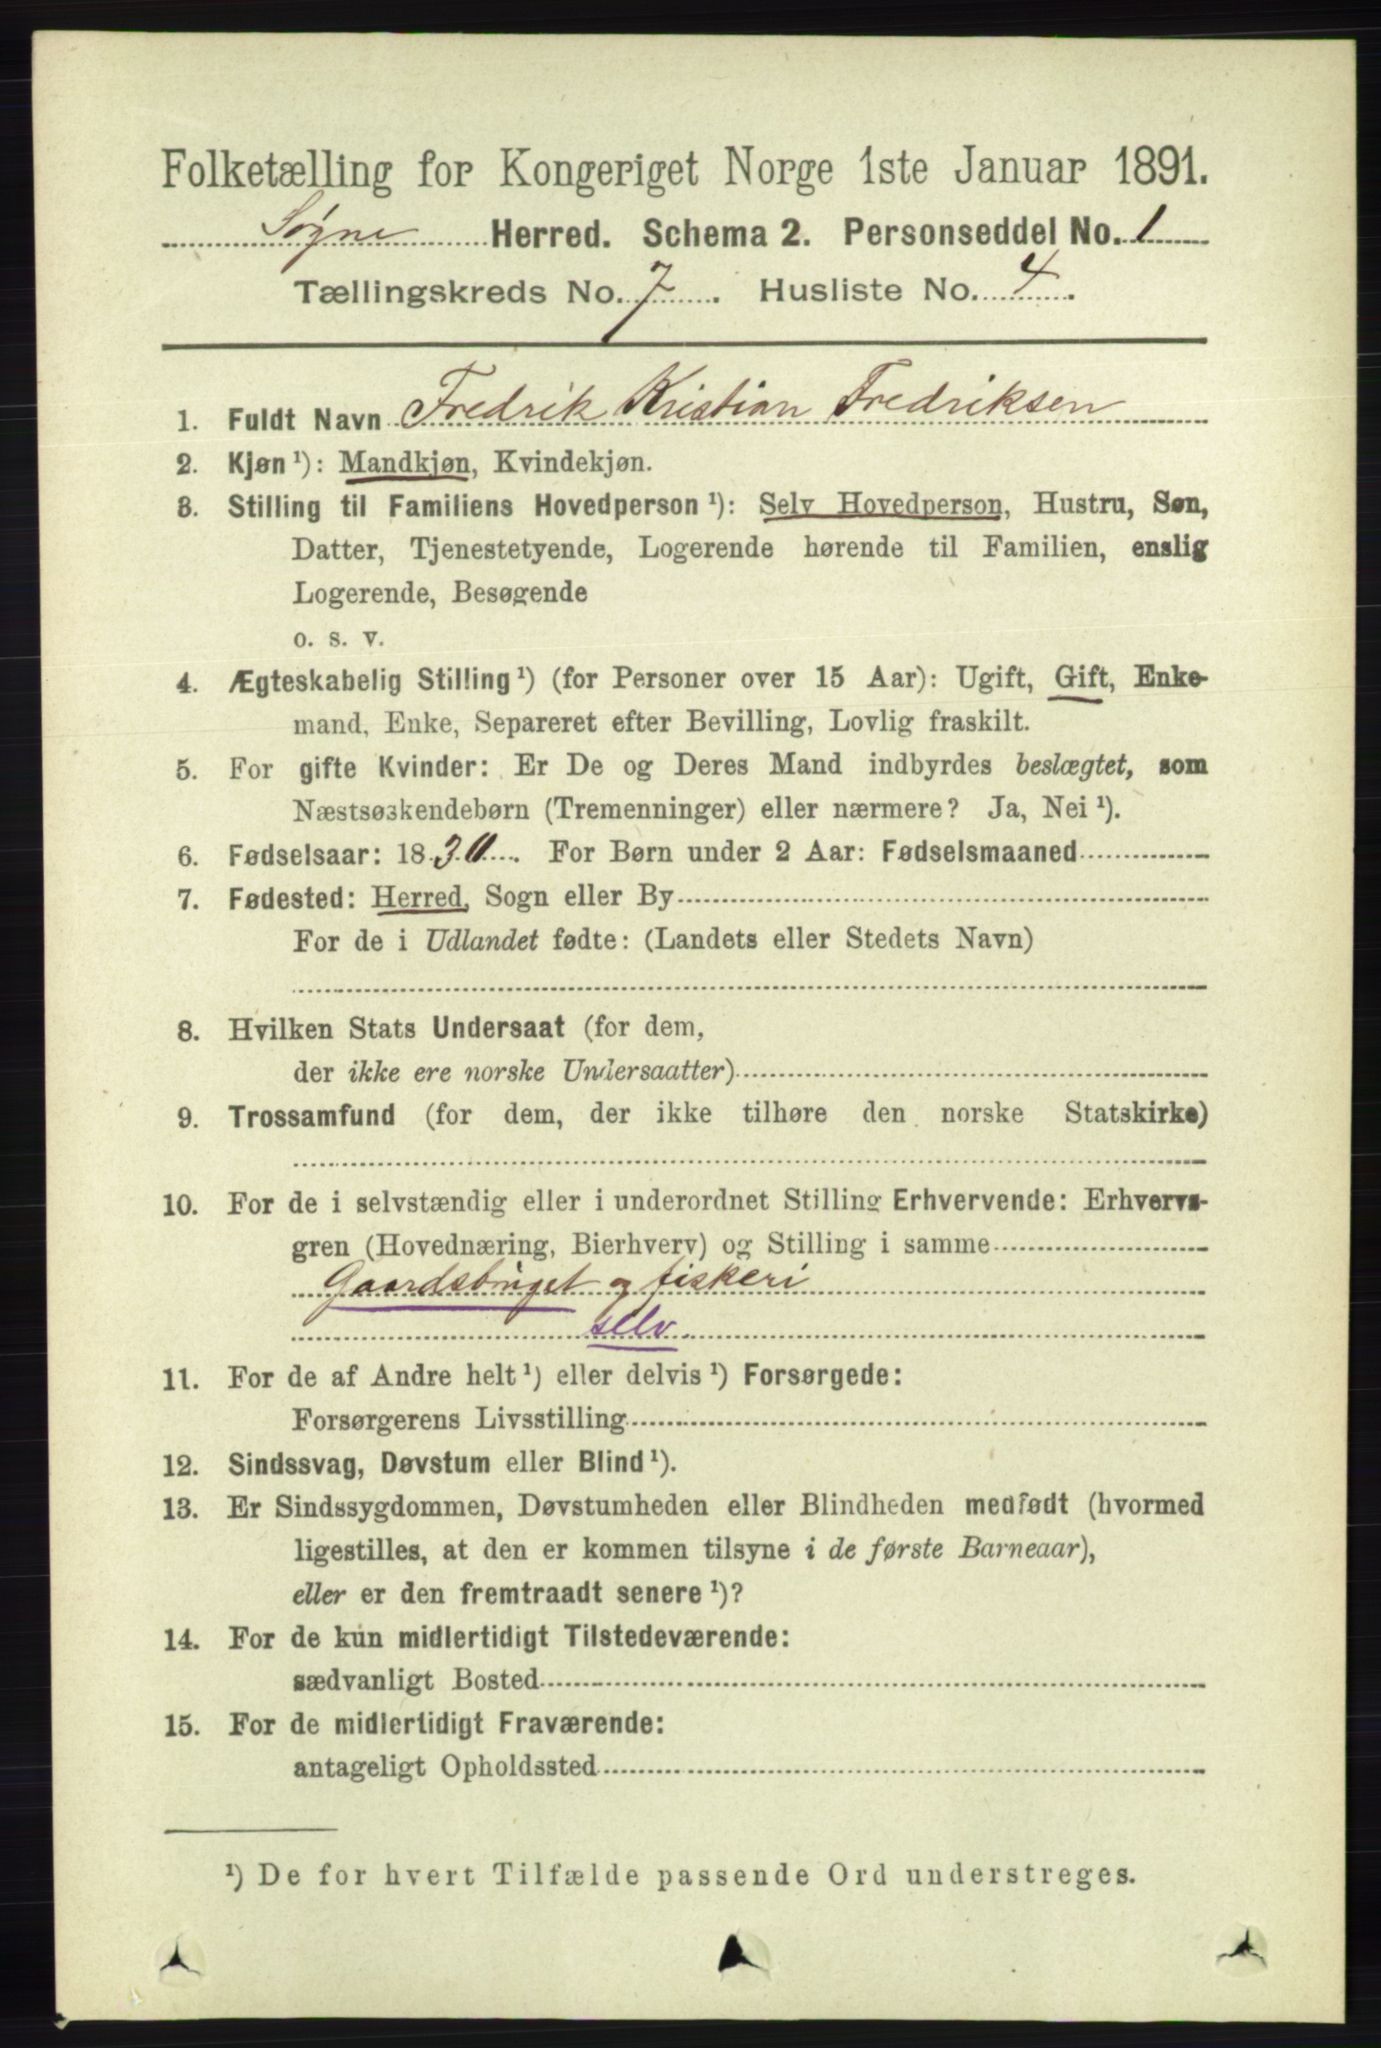 Folketælling for Kongeriget Norge 1ste Januar 1891.
Søgne Herred. Schema 2. Personseddel No. 1
Tællingskreds No. 7. Husliste No. 4.
1. Fuldt Navn Fredrik Kristian Fredriksen
2. Kjøn ¹): Mandkjøn, Kvindekjøn.
3. Stilling til Familiens Hovedperson ¹): Selv Hovedperson, Hustru, Søn,
Datter, Tjenestetyende, Logerende hørende til Familien, enslig
Logerende, Besøgende
o. s. v.
4. Ægteskabelig Stilling ¹) (for Personer over 15 Aar): Ugift, Gift, Enke-
mand, Enke, Separeret efter Bevilling, Lovlig fraskilt.
5. For gifte Kvinder: Er De og Deres Mand indbyrdes beslægtet, som
Næstsøskendebørn (Tremenninger) eller nærmere? Ja, Nei ¹).
6. Fødselsaar: 18 For Børn under 2 Aar: Fødselsmaaned
7. Fødested: Herred, Sogn eller By
For de i Udlandet fødte: (Landets eller Stedets Navn)
8. Hvilken Stats Undersaat (for dem,
der ikke ere norske Undersaatter)
9. Trossamfund (for dem, der ikke tilhøre den norske Statskirke)
10. For de i selvstændig eller i underordnet Stilling Erhvervende: Erhvervs-
gren (Hovednæring, Bierhverv) og Stilling i samme
Gaardsbruget og fiskeri
selv
11. For de af Andre helt ¹) eller delvis ¹) Forsørgede:
Forsørgerens Livsstilling
12. Sindssvag, Døvstum eller Blind ¹).
13. Er Sindssygdommen, Døvstumheden eller Blindheden medfødt (hvormed
ligestilles, at den er kommen tilsyne i de første Barneaar),
eller er den fremtraadt senere ¹)?
14. For de kun midlertidigt Tilstedeværende:
sædvanligt Bosted
15. For de midlertidigt Fraværende:
antageligt Opholdssted
¹) De for hvert Tilfælde passende Ord understreges.